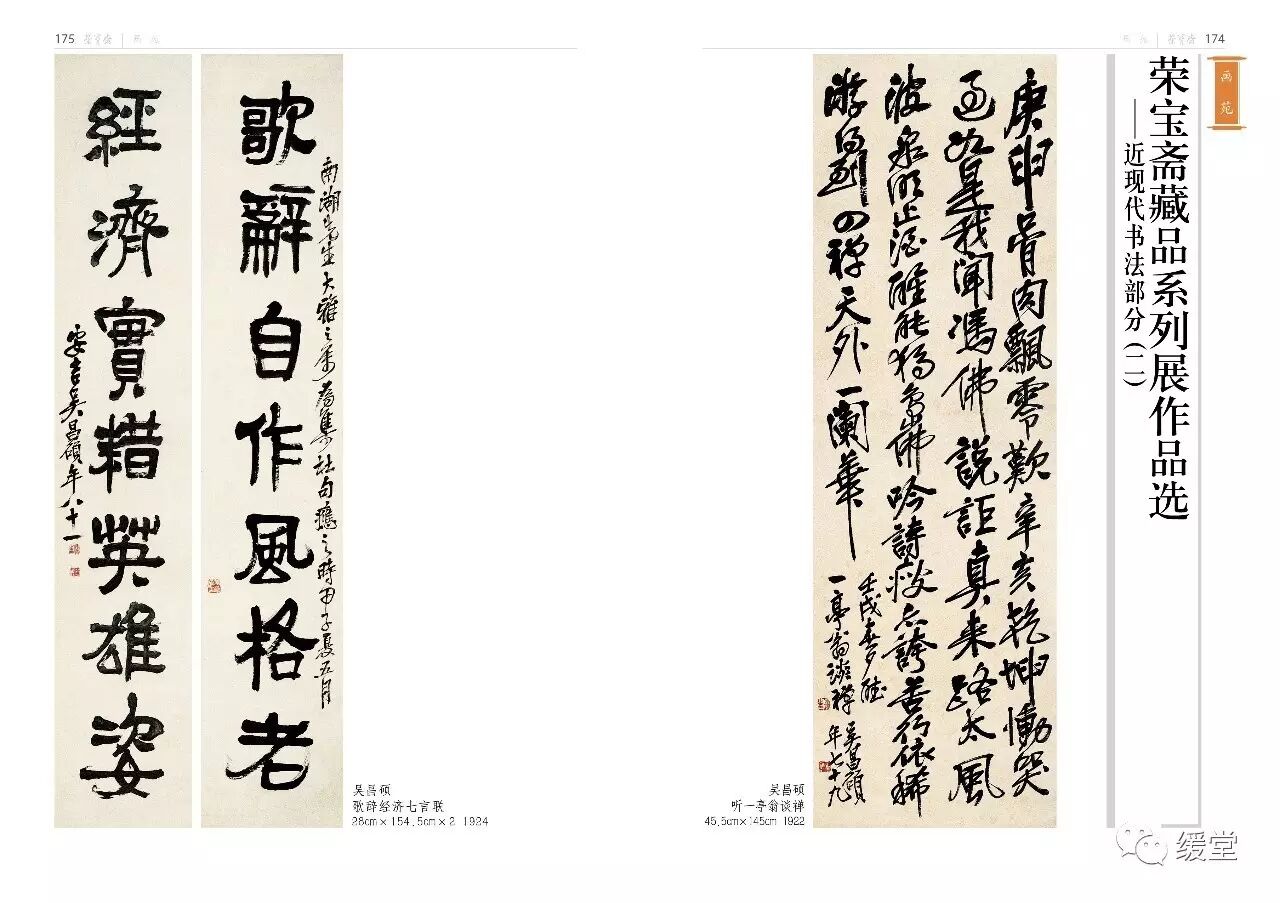 174
荣宝斋
画苑
画苑
荣宝斋藏品系列展作品选
——近现代书法部分(二)
庚申骨肉飄零歎辛亥乾坤慟哭
過如是我聞馮佛說詎真来路太風
波泉明止酒醒能獨島佛吟詩瘦亦誇苦行依稀
游得到四禪天外一蘭華
壬戌春夕聽
一亭翁談禪 吳昌碩
年七十九
吴昌硕
听一亭翁谈禅
45.5cm×145cm 1922
175
荣宝斋
画苑
歌辭自作風格老
南湖先生大雅之屬為集杜句應之時甲子夏五月
經濟實藉英雄姿
安吉吳昌碩年八十一
吴昌硕
歌辞经济七言联
28cm×154.5cm×2 1924
缓堂